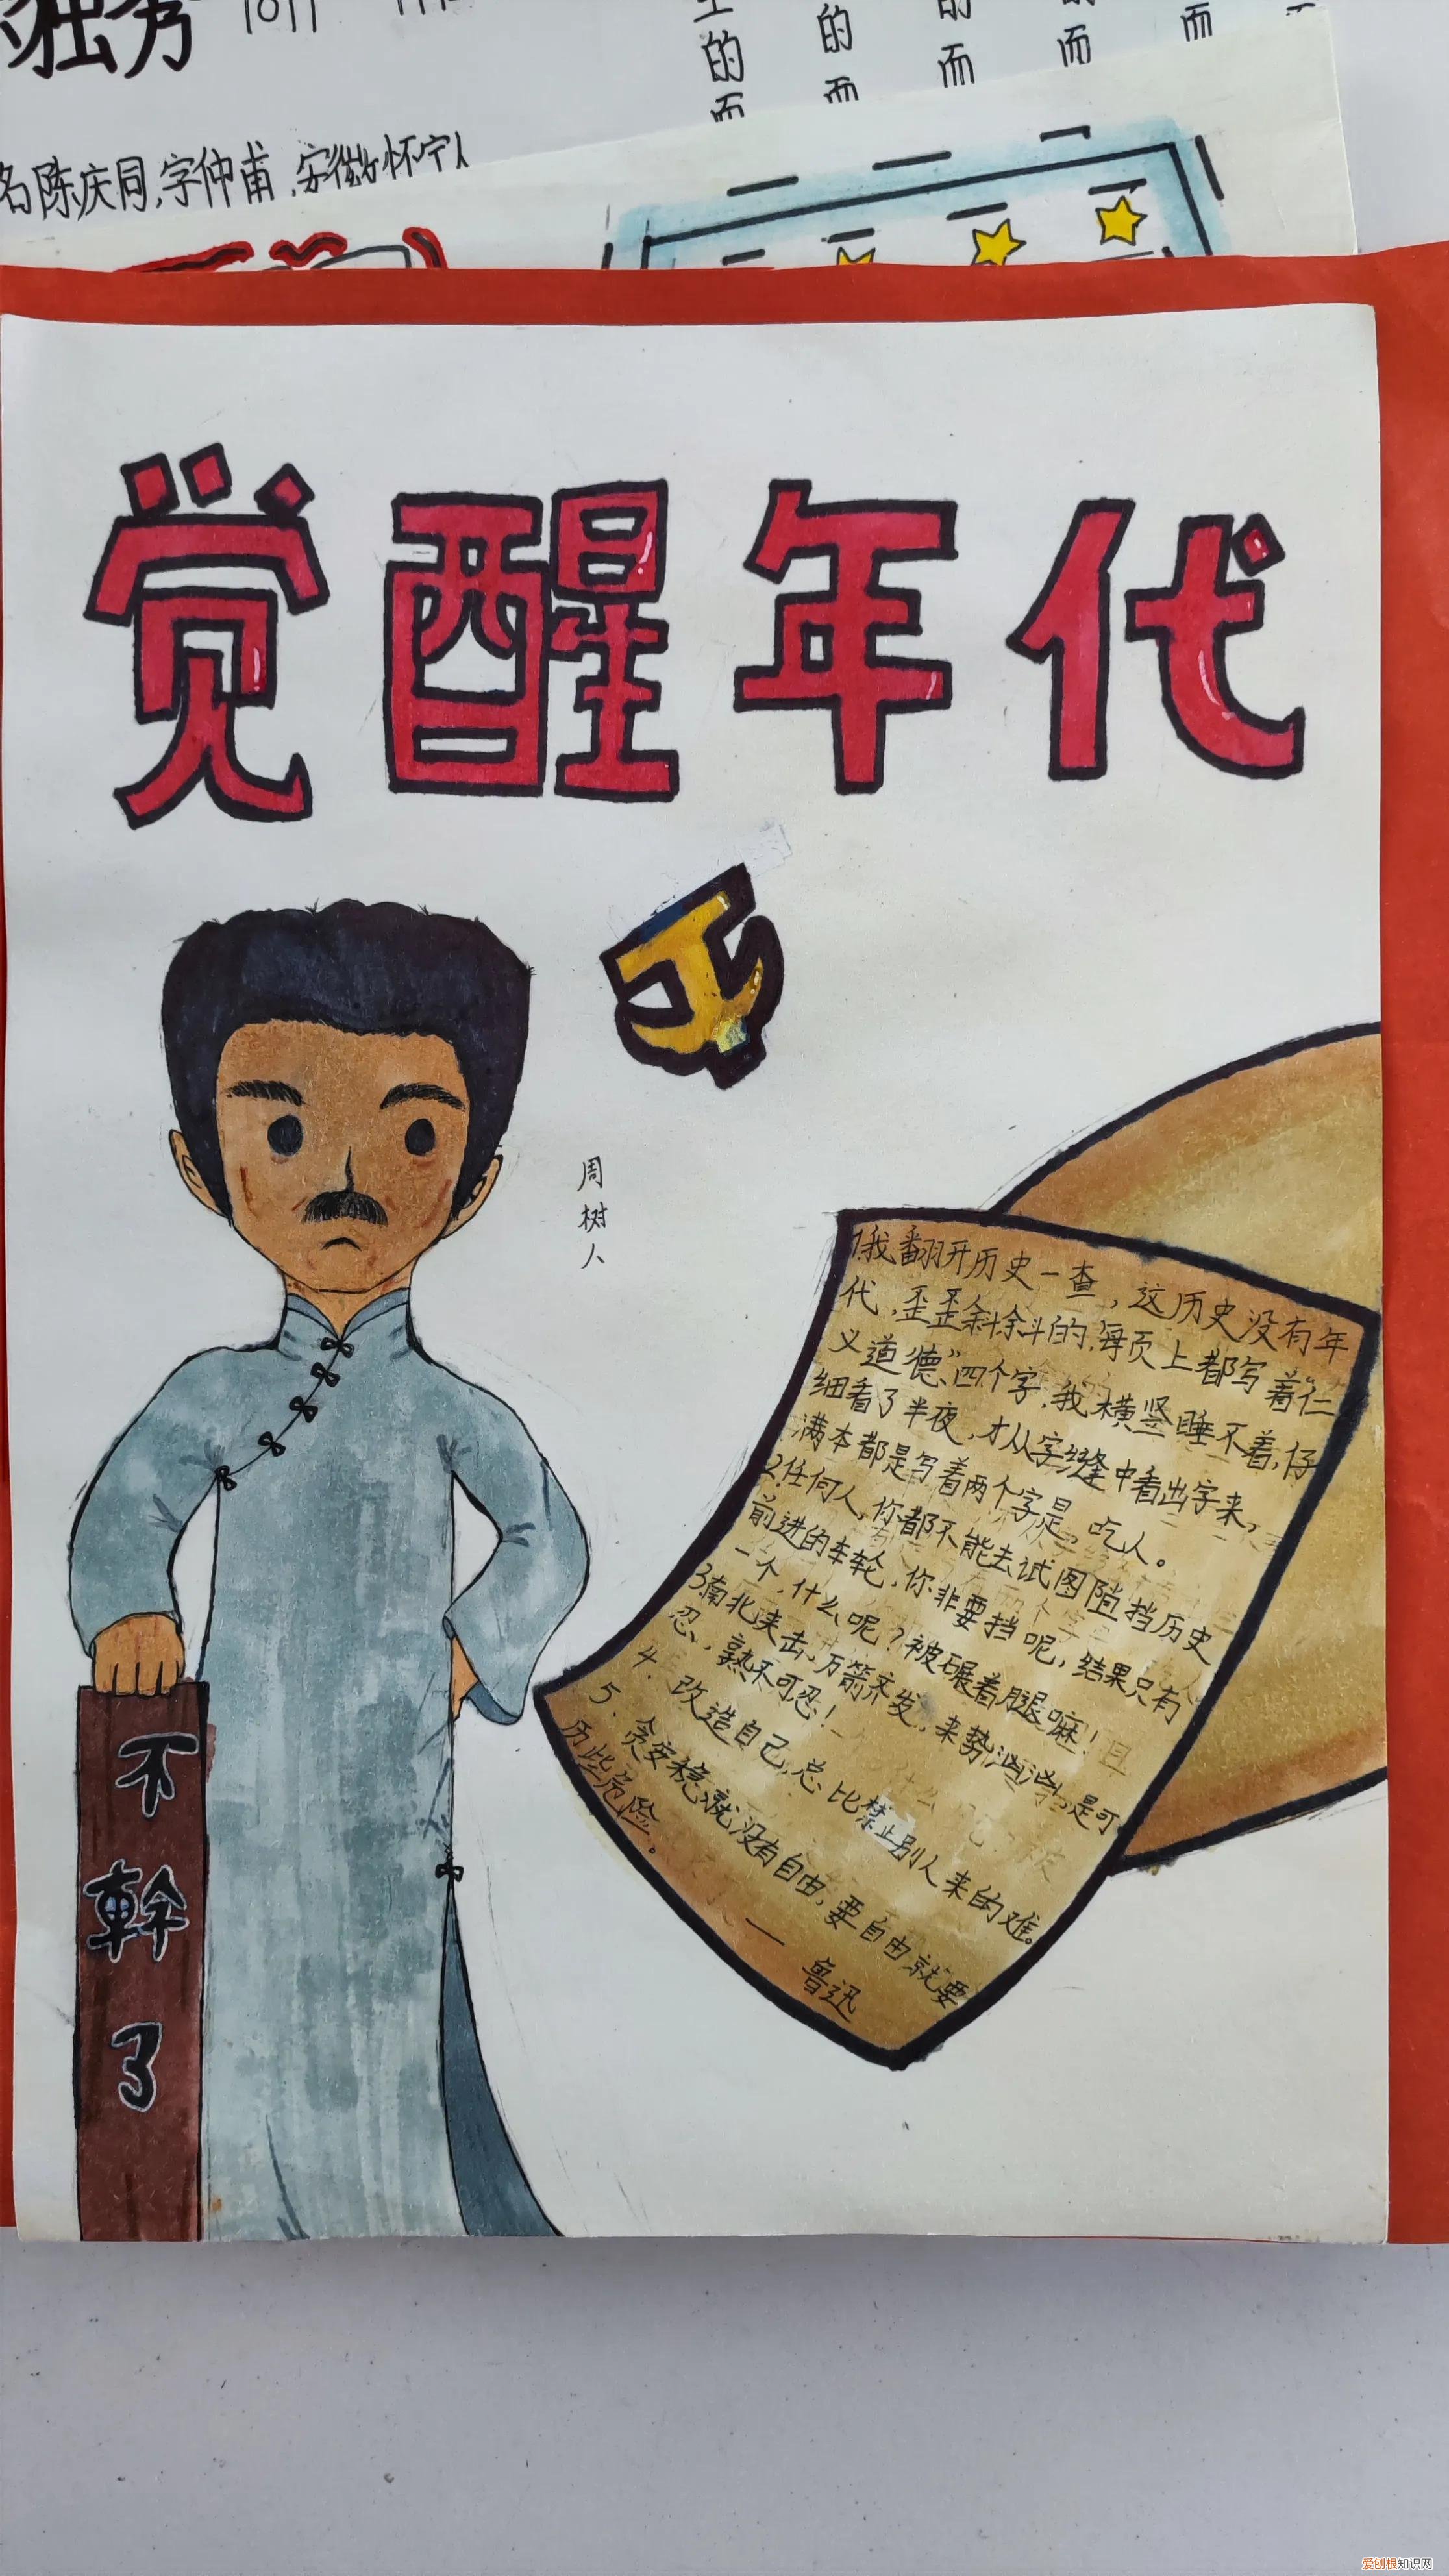 独秀
生的而
的而
的而
的而
而
名陈庆同,字仲甫,安徽怀宁人
觉醒年代
周树人
1我翻开历史一查，这历史没有年
代，歪歪斜斜的,每页上都写着“仁
义道德”四个字,我横竖睡不着,仔
细看了半夜，才从字缝中看出字来，
满本都是写着两个字是，吃人。
2任何人,你都不能去试图阻挡历史
前进的车轮,你非要挡呢,结果只有
一个,什么呢？被碾着腿嘛！
3南北夹击,万箭齐发,来势汹汹,是可
忍,熟不可忍！
4.改造自己,总比禁止别人来的难。
5.贪安稳就没有自由,要自由就要
历些危险。
——鲁迅
不幹了
爱刨根知识网